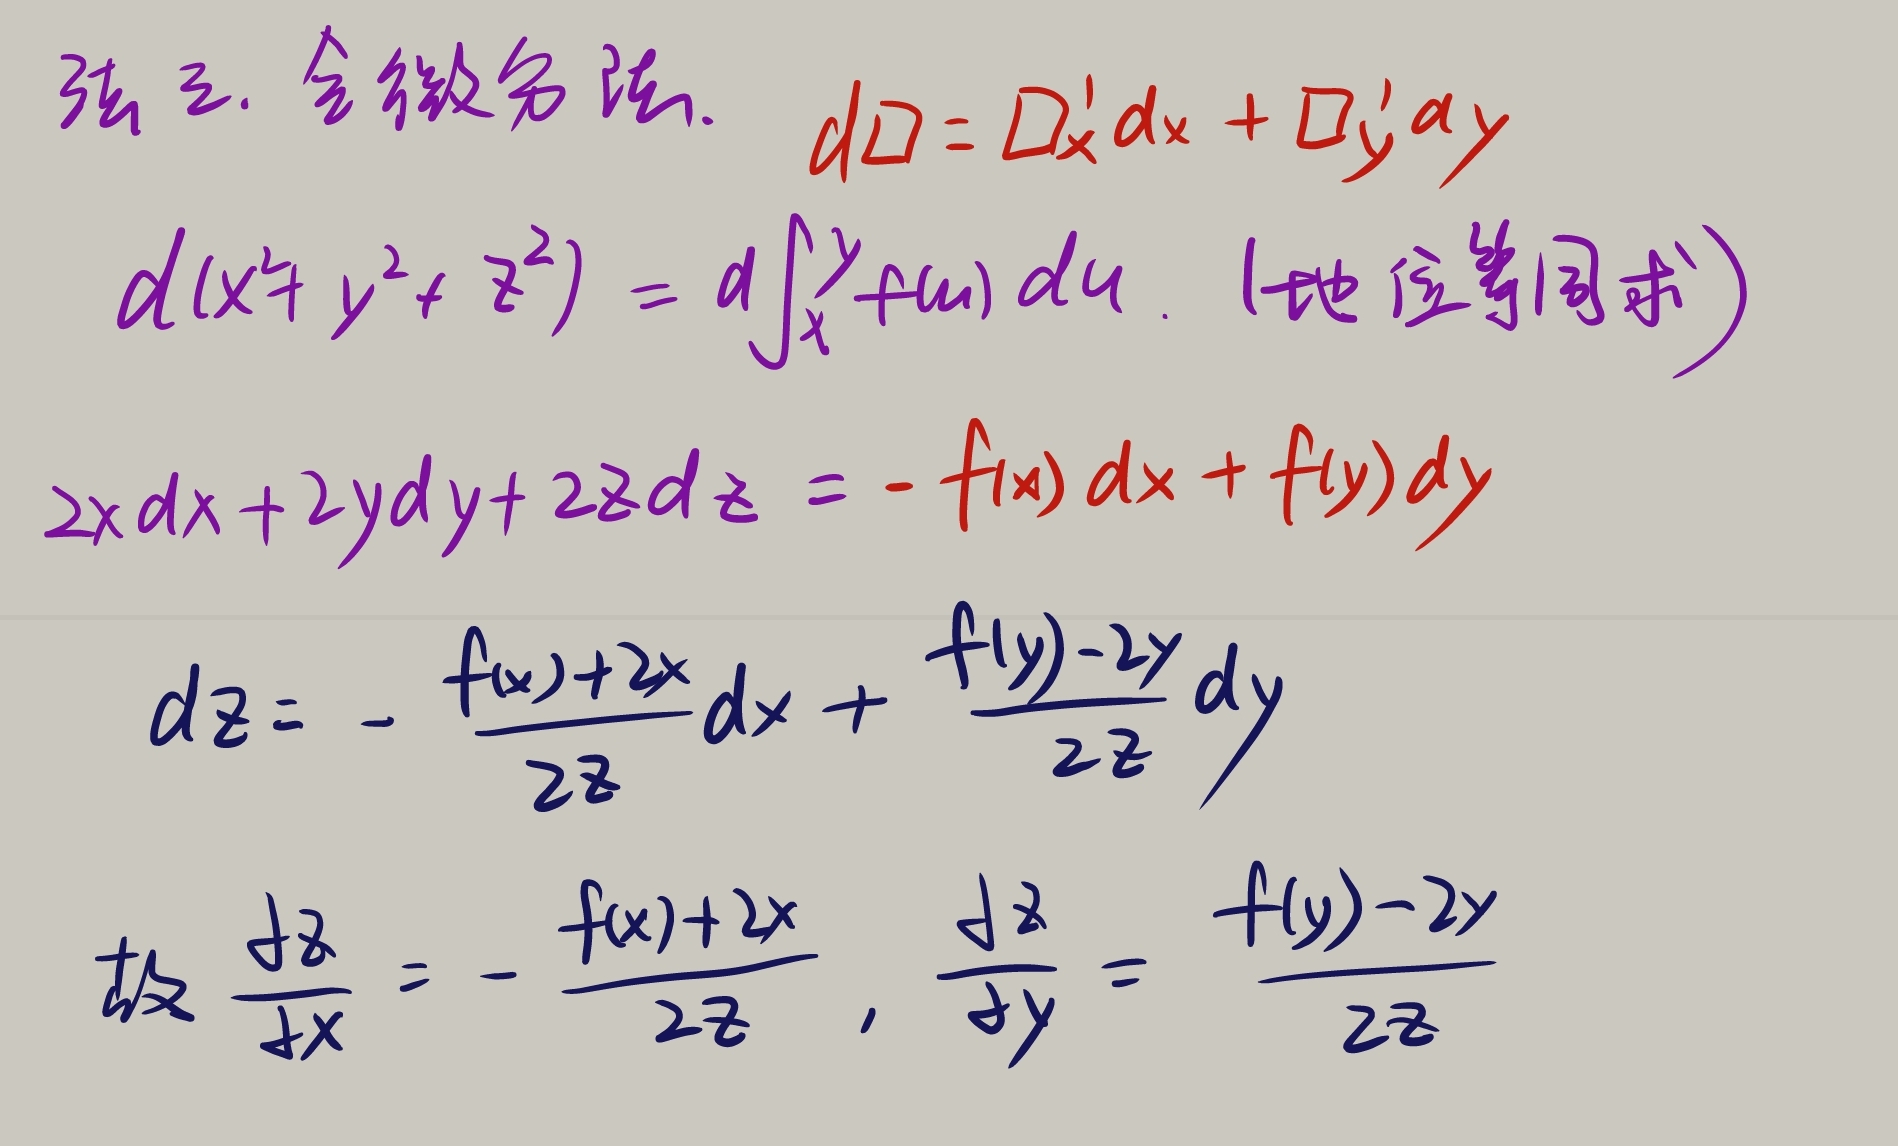 法三. 全微分法. d□ = □'x dx + □'y dy
d(x²+y²+z²) = d∫_x^y f(u) du. (地位等同求)
2xdx+2ydy+2zdz = -f(x)dx+f(y)dy
dz = - \frac{f(x)+2x}{2z} dx + \frac{f(y)-2y}{2z} dy
故 \frac{∂z}{∂x} = - \frac{f(x)+2x}{2z} , \frac{∂z}{∂y} = \frac{f(y)-2y}{2z}